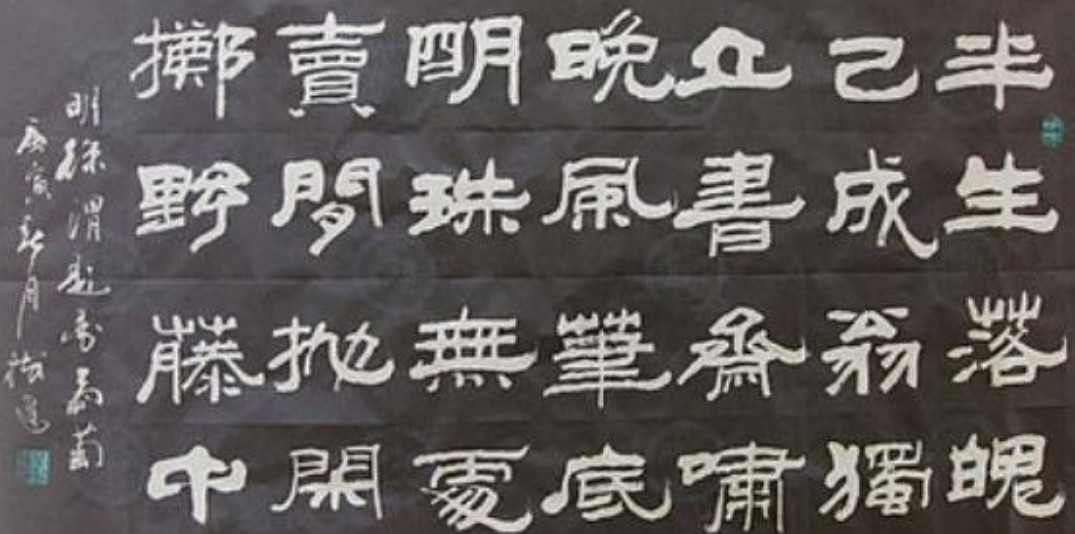 半生落魄
已成翁獨
立書齋嘯
晚風筆底
明珠無處
賣閒拋閑
擲野藤中
明徐渭題画葡萄
庚寅新月